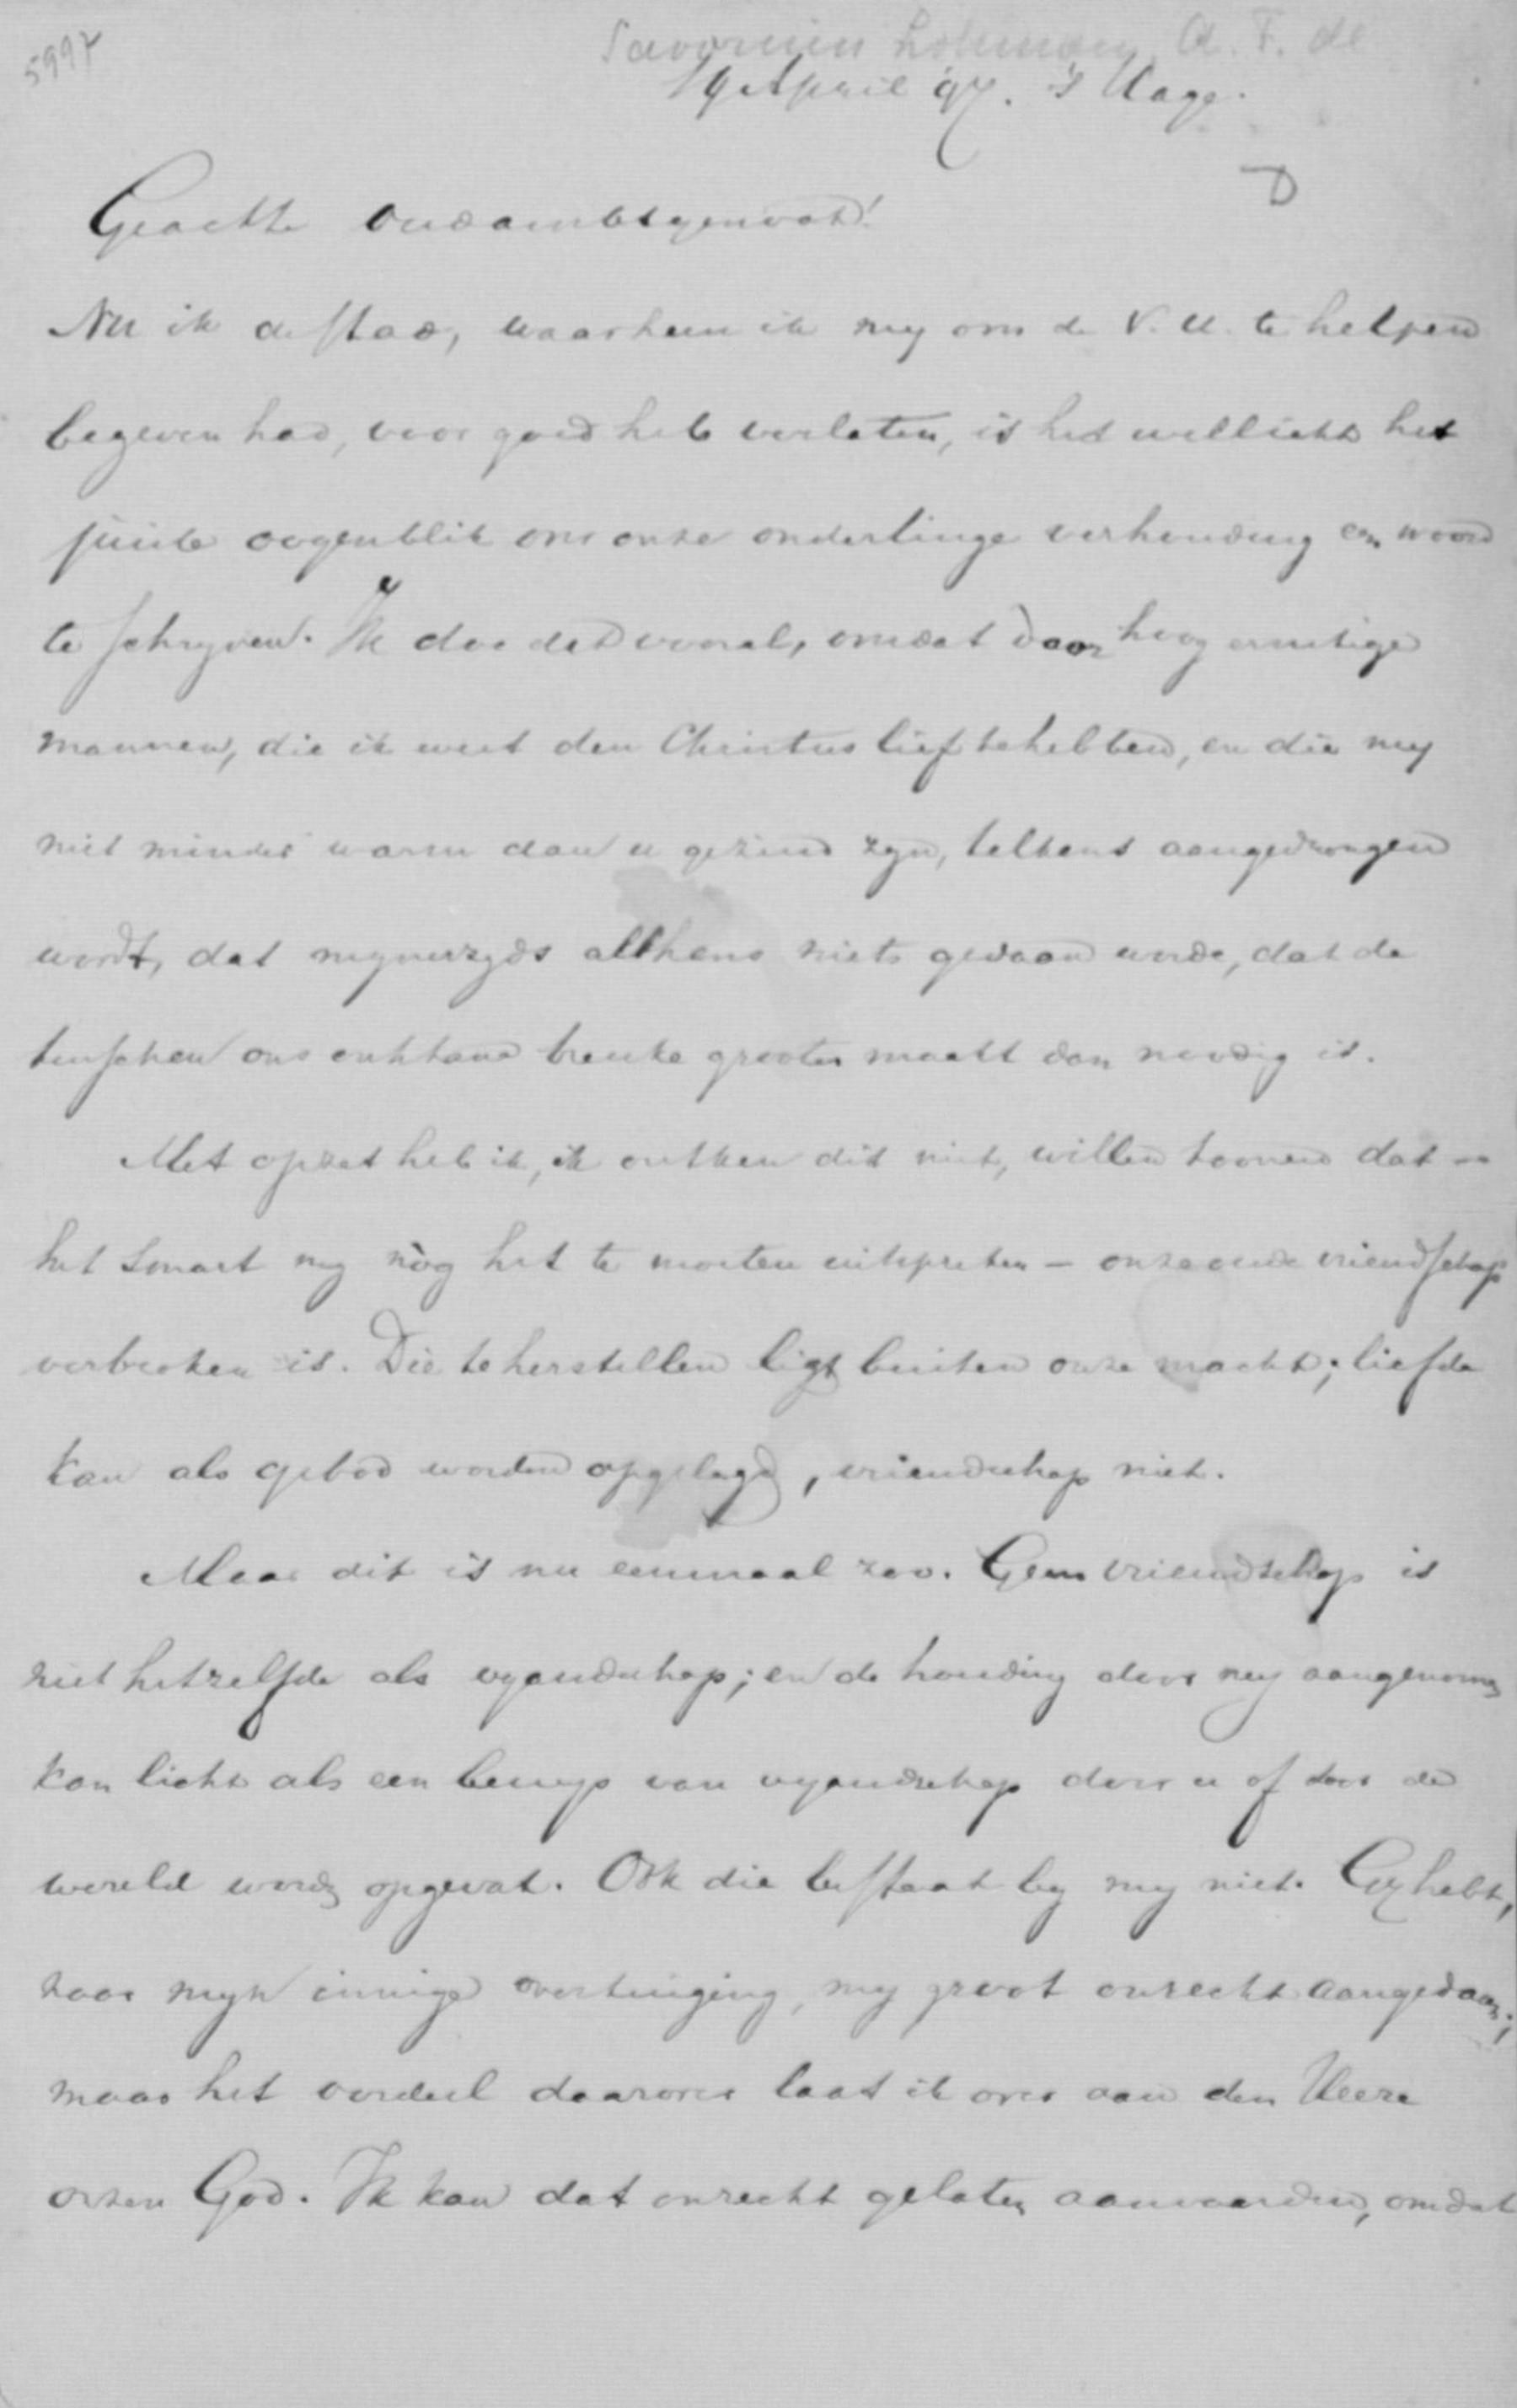 5997
Savornin Lohman, A. F. de
19 April 97. 's Hage.
D
Geachte oudambtgenoot!
Nu ik de stad, waarheen ik my om de V. U. te helpen
begeven had, voor goed heb verlaten, is het wellicht het
juiste oogenblik om onze onderlinge verhouding een woord
te schryven. Ik doe dat vooral, omdat door hoog ernstige
mannen, die ik weet den Christus lief te hebben, en die my
niet minder warm dan u gezind zyn, telkens aangedrongen
wordt, dat mynerzyds althans niets gedaan worde, dat de
tusschen ons ontstane breuke grooter maakt dan noodig is.
Met opzet heb ik, ik ontken dit niet, willen toonen dat –
het smart my nòg het te moeten uitspreken – onze oude vriendschap
verbroken is. Die te herstellen ligt buiten onze macht; liefde
kan als gebod worden opgelegd, vriendschap niet.
Maar dit is nu eenmaal zoo. Geen vriendschap is
niet hetzelfde als vyandschap; en de houding door my aangenomen
kan licht als een bewys van vyandschap door u of door de
wereld worden opgevat. Ook die bestaat by my niet. Gy hebt,
naar myn innige overtuiging, my groot onrecht aangedaan;
maar het oordeel daarover laat ik over aan den Heere
onzen God. Ik kan dat onrecht gelaten aanvaarden, omdat